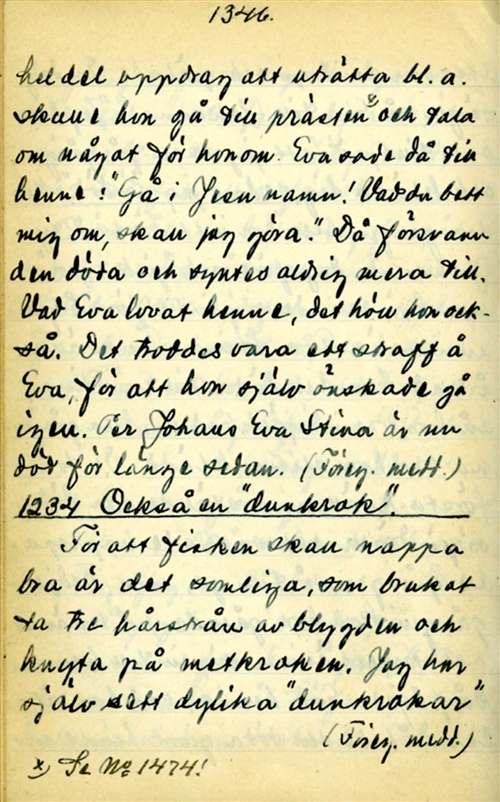 1346.
hel del uppdrag att uträtta bl. a.
skulle hon gå till prästen x) och tala
om något för honom. Eva sade då till
henne: "Gå i Jesu namn! Vad du bett
mig om, skall jag göra." Då försvann
den döda och syntes aldrig mera till.
Vad Eva lovat henne, det höll hon ock-
så. Det troddes vara ett straff å
Eva, för att hon själv önskade gå
igen. Per Johans Eva Stina är nu
död för länge sedan. (Föreg. medd.)
1234 Också en "dunkrok".
För att fisken skall nappa
bra är det somliga, som brukat
ta tre hårstrån av blygden och
knyta på metkroken. Jag har
själv sett dylika "dunkrokar"
(Föreg. medd.)
x) Se No 1474!